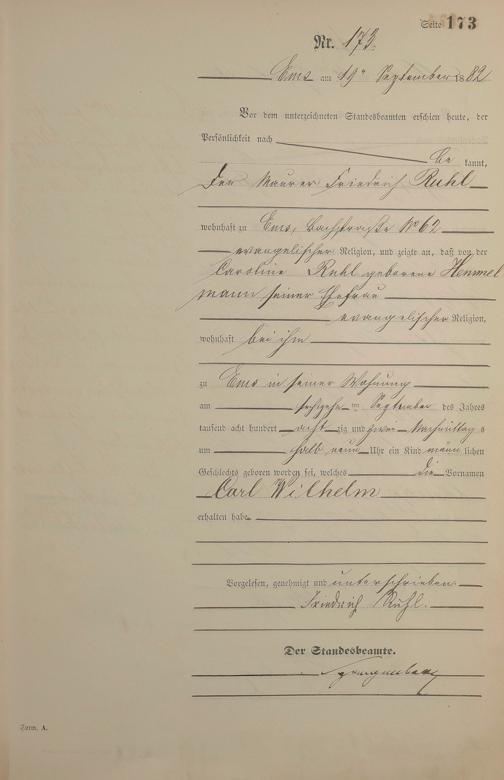 Seite 173
Nr. 173.
Ems am 19ten September 1882
Vor dem unterzeichneten Standesbeamten erschien heute, der
Persönlichkeit nach
be kannt,
Der Maurer Friedrich Ruhl
wohnhaft zu Ems, Bachstraße No 62
evangelischer Religion, und zeigte an, daß von der
Caroline Ruhl geborene Hemmel
mann seiner Ehefrau
evangelischer Religion,
wohnhaft bei ihm
zu Ems in seiner Wohnung
am sechszehnten September des Jahres
tausend acht hundert acht zig und zwei Nachmittags
um halb neun Uhr ein Kind männlichen
Geschlechts geboren worden sei, welches die Vornamen
Carl Wilhelm
erhalten habe.
Vorgelesen, genehmigt und unterschrieben
Friedrich Ruhl.
Der Standesbeamte.
Form. A.